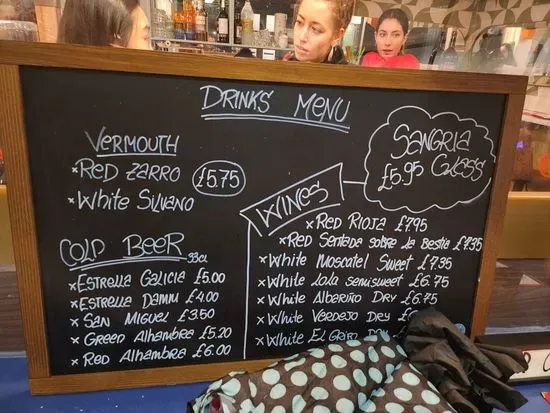 DRINKS MENU
VERMOUTH
×RED ZARRO
×WHITE SILVANO
£5.75
COLD BEER 33cl
×ESTRELLA GALICIA £5.00
×ESTRELLA DAMM £4.00
×SAN MIGUEL £3.50
×GREEN ALHAMBRA £5.20
×RED ALHAMBRA £6.00
SANGRIA
£5.95 GLASS
WINES
×RED RIOJA £7.95
×RED Sentada sobre la Bestia £7.35
×WHITE MOSCATEL SWEET £7.35
×WHITE Lola semisweet £6.75
×WHITE ALBARIÑO DRY £6.75
×WHITE VERDEJO DRY
×WHITE EL